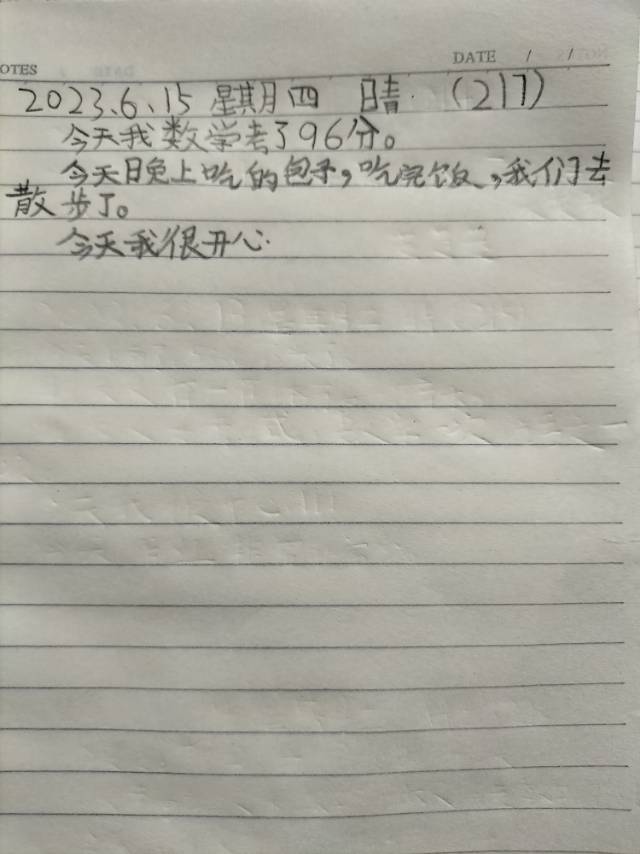 OTES
DATE / /
2023.6.15 星期四 晴. (217)
今天我数学考了96分。
今天晚上吃的包子,吃完饭,我们去
散步了。
今天我很开心.